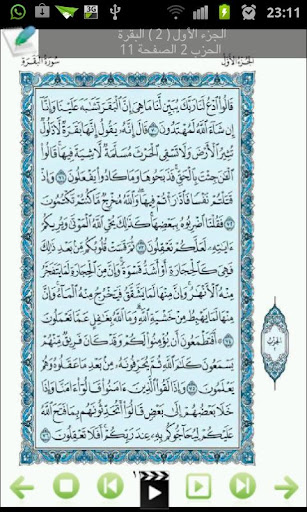 23:11
3G
الجزء الأول ( 2 ) البقرة
الحزب 2 الصفحة 11
سورة البقرة
الجزء الأول
قَالُوا۟ ٱدْعُ لَنَا رَبَّكَ يُبَيِّن لَّنَا مَا هِىَ إِنَّ ٱلْبَقَرَ تَشَٰبَهَ عَلَيْنَا وَإِنَّآ
إِن شَآءَ ٱللَّهُ لَمُهْتَدُونَ ٧٠ قَالَ إِنَّهُۥ يَقُولُ إِنَّهَا بَقَرَةٌ لَّا ذَلُولٌ
تُثِيرُ ٱلْأَرْضَ وَلَا تَسْقِى ٱلْحَرْثَ مُسَلَّمَةٌ لَّا شِيَةَ فِيهَا قَالُوا۟
ٱلْـَٰٔنَ جِئْتَ بِٱلْحَقِّ فَذَبَحُوهَا وَمَا كَادُوا۟ يَفْعَلُونَ ٧١ وَإِذْ
قَتَلْتُمْ نَفْسًا فَٱدَّٰرَْٰٔتُمْ فِيهَا وَٱللَّهُ مُخْرِجٌ مَّا كُنتُمْ تَكْتُمُونَ
٧٢ فَقُلْنَا ٱضْرِبُوهُ بِبَعْضِهَا كَذَٰلِكَ يُحْىِ ٱللَّهُ ٱلْمَوْتَىٰ وَيُرِيكُمْ
ءَايَٰتِهِۦ لَعَلَّكُمْ تَعْقِلُونَ ٧٣ ثُمَّ قَسَتْ قُلُوبُكُم مِّنۢ بَعْدِ ذَٰلِكَ
فَهِىَ كَٱلْحِجَارَةِ أَوْ أَشَدُّ قَسْوَةً وَإِنَّ مِنَ ٱلْحِجَارَةِ لَمَا يَتَفَجَّرُ
مِنْهُ ٱلْأَنْهَٰرُ وَإِنَّ مِنْهَا لَمَا يَشَّقَّقُ فَيَخْرُجُ مِنْهُ ٱلْمَآءُ وَإِنَّ
مِنْهَا لَمَا يَهْبِطُ مِنْ خَشْيَةِ ٱللَّهِ وَمَا ٱللَّهُ بِغَٰفِلٍ عَمَّا تَعْمَلُونَ
٧٤ أَفَتَطْمَعُونَ أَن يُؤْمِنُوا۟ لَكُمْ وَقَدْ كَانَ فَرِيقٌ مِّنْهُمْ
يَسْمَعُونَ كَلَٰمَ ٱللَّهِ ثُمَّ يُحَرِّفُونَهُۥ مِنۢ بَعْدِ مَا عَقَلُوهُ وَهُمْ
يَعْلَمُونَ ٧٥ وَإِذَا لَقُوا۟ ٱلَّذِينَ ءَامَنُوا۟ قَالُوٓا۟ ءَامَنَّا وَإِذَا
خَلَا بَعْضُهُمْ إِلَىٰ بَعْضٍ قَالُوٓا۟ أَتُحَدِّثُونَهُم بِمَا فَتَحَ ٱللَّهُ
عَلَيْكُمْ لِيُحَآجُّوكُم بِهِۦ عِندَ رَبِّكُمْ أَفَلَا تَعْقِلُونَ ٧٦
الحزب